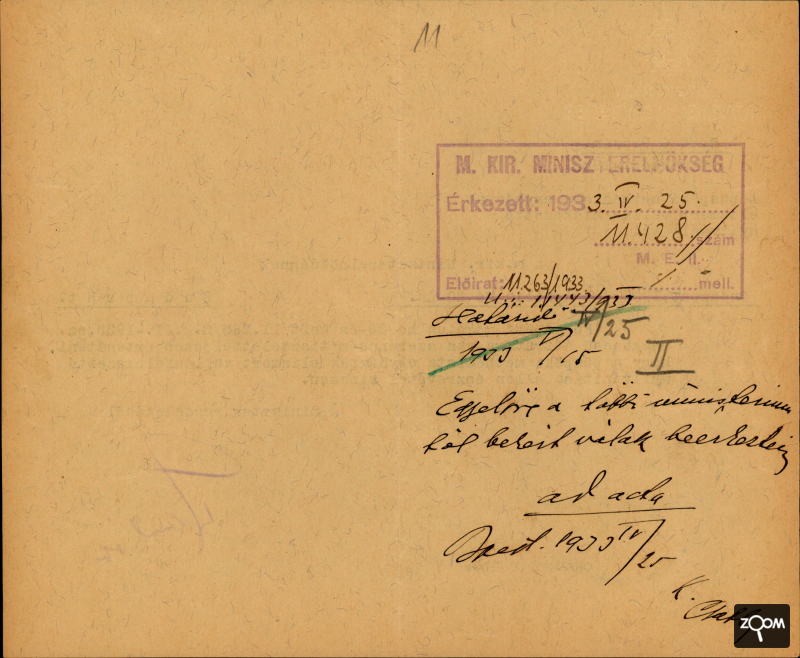 11
M. KIR. MINISZTERELNÖKSÉG
Érkezett: 1933. IV. 25.
11.428 szám
M. E. II.
Előirat: 11.263/1933 mell.
11443/933
Határidő IV/25
1933 V/15
II
Egyelőre a többi ministerium
tól bekért válasz beérkeztéig
ad acta
Bpest. 1933 IV/25
K.
ZOOM